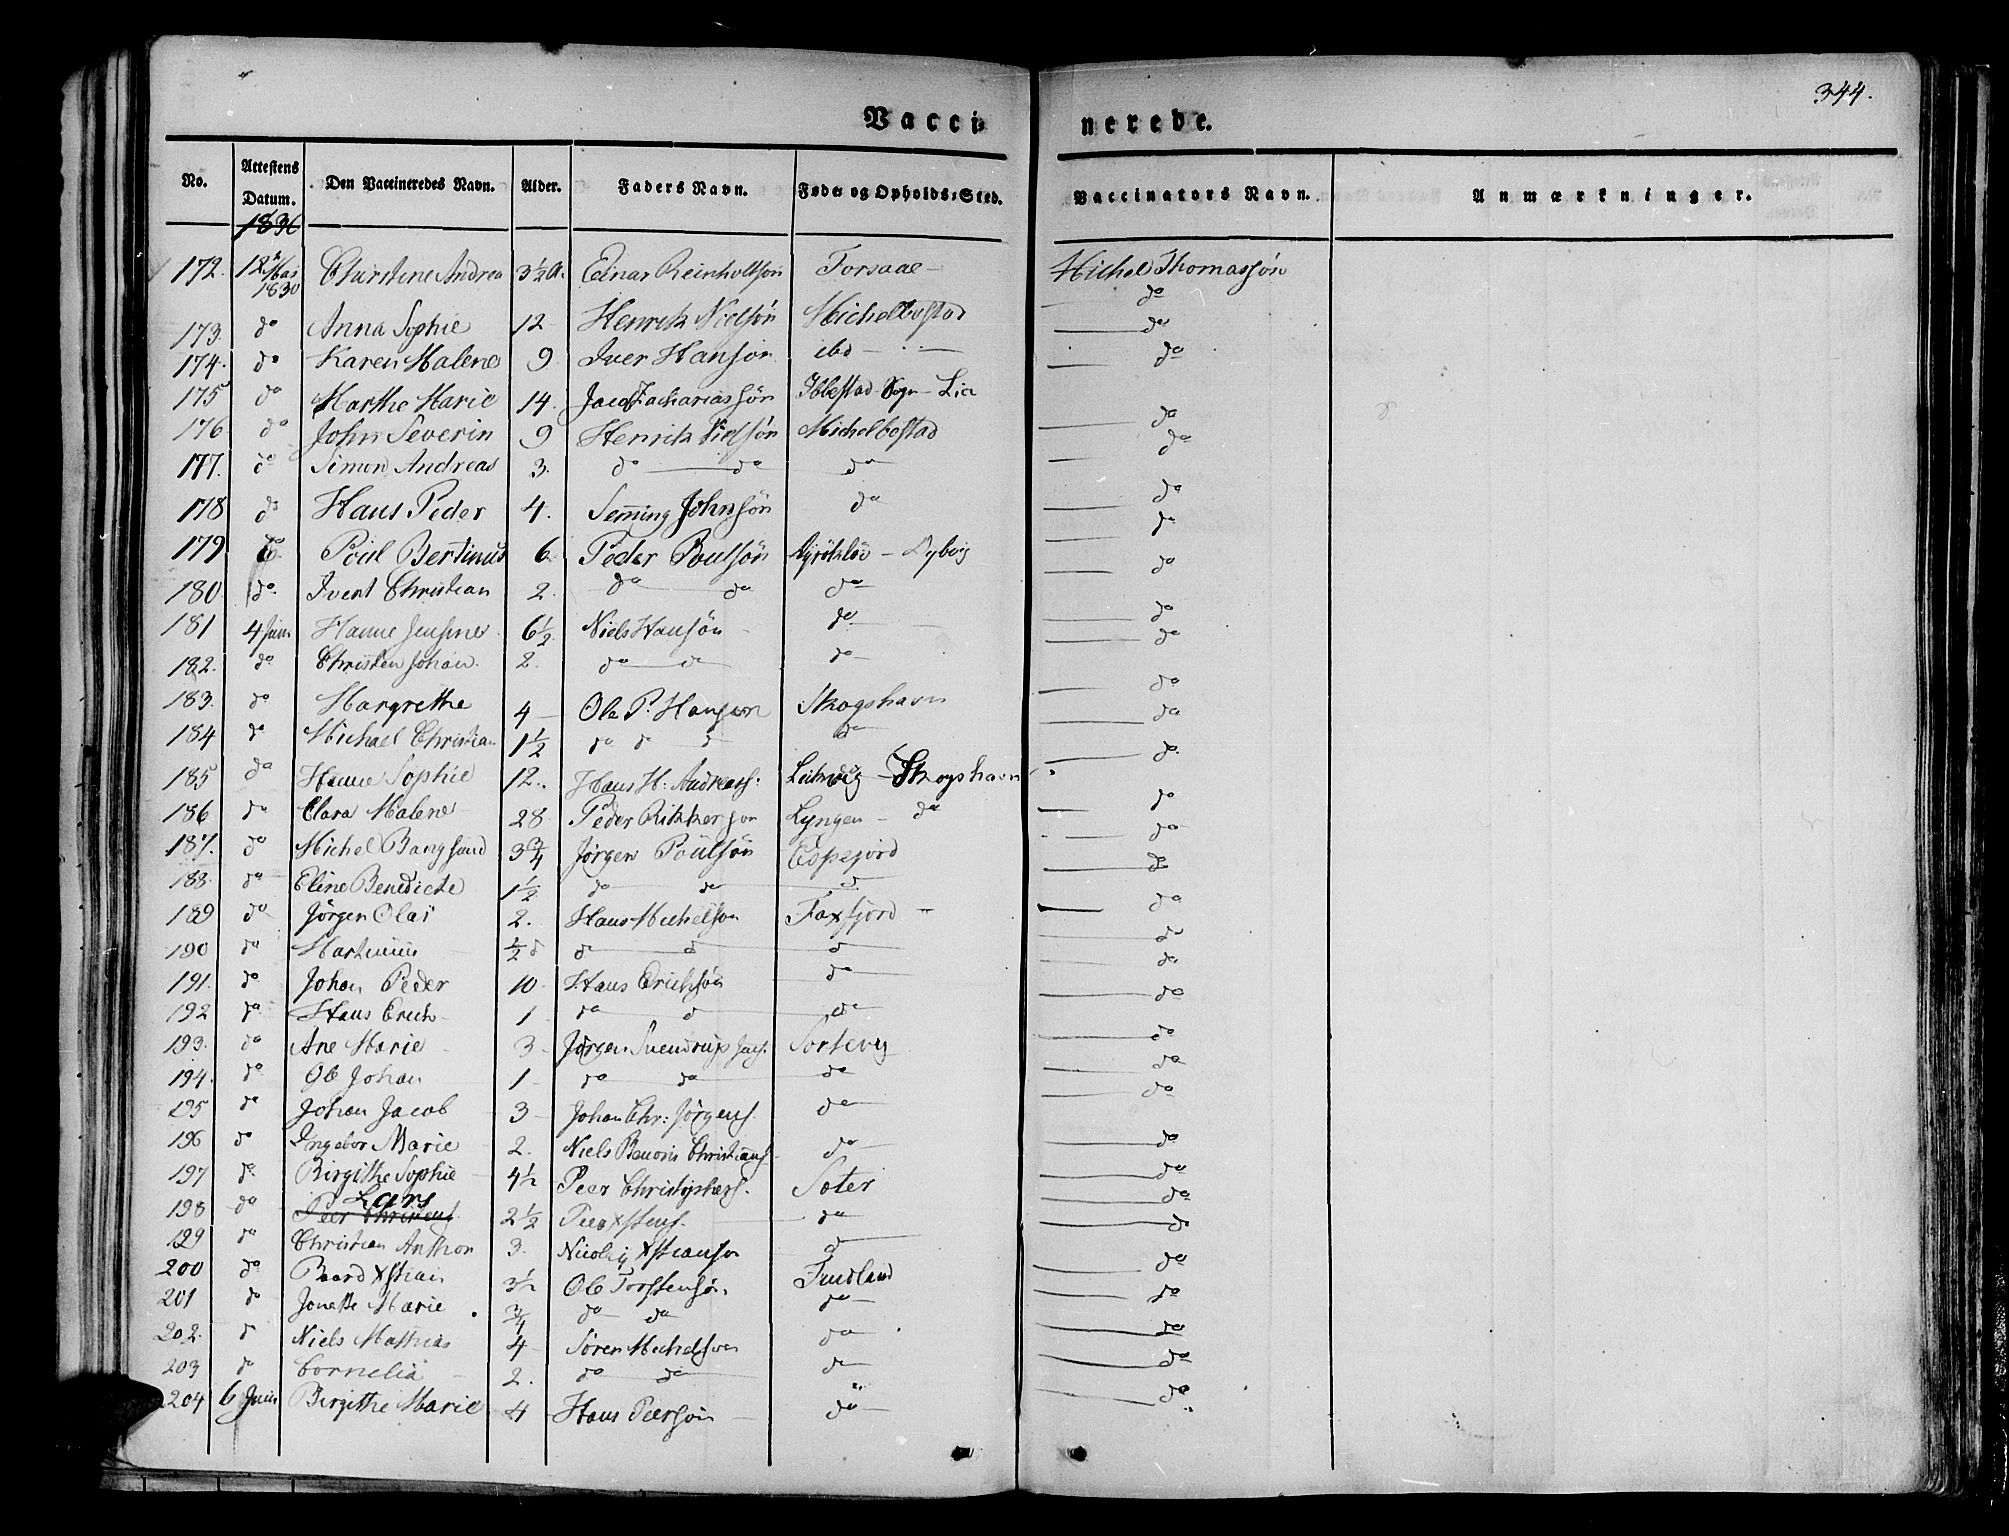 344.
Vaccinerede.
No. Attestens Datum. Den Vaccineredes Navn. Alder. Faders Navn. Føde og Opholds-Sted. Vaccinators Navn. Anmærkninger.
1830
172. 12 Mai 1830 Christine Andrea 3½ A. Einar Reinholtsøn Forsaae - Michel Thomassøn
173. do Anna Sophie 12 Henrik Nielsøn Michelbostad do
174. do Karen Malene 9 Iver Hansøn ibd - do
175 do Marthe Marie 14. Jacob Zachariassøn Ibbestad Sogn - Lia do
176 do John Severin 9 Henrik Nielsøn Michelbostad do
177. do Simon Andreas 3. do do do do
178 do Hans Peder 4. Johnsøn do do
179 do Poul Bertinus 6 Peder Poulsøn - Dybvig do
180 do Ivert Christian 2. do do do do
181 4 Juni Hanne 6½ Niels Hansøn do do
182. do Christen Johan. 2. do do do do
183. do Margrethe 4 - Ole P. Hansen Skogshavn do
184 do Michael Christian 1½ do do d do do
185 do Hanne Sophie 12. Hans H: Andreass: - Skogshavn do
186 do Clara Malene 28 Peder Rikkersøn Lyngen - do do
187. do Michel Bangsund 3¾ Jørgen Poulsøn Espejord do
188. do Eline Benedicte 1½ do do d do
189 do Jørgen Olai 2. Hans Michelsøn Faxfjord do
190 do Martinus ½ d d d d do
191. do Johan Peder 10 Hans Erichsøn do do
192 do Hans Erich 1 do d do do
193. do Ane Marie 3 Jørgen Svendrup Jens. Sortevig do
194. do Ole Johan 1 do do do do
195 do Johan Jacob 3 Johan Chr: Jørgens. do do
196 do Ingebor Marie 2. Niels Christians. do do
197 do Birgithe Sophie 4½ Peer Christophers. Soter do
198 do Lars 2½ Peer Xstens. do do
199 do Christian Anthon 3. Nicolay Xstiansøn d do
200 do Baard Xstian 3½ Ole Torstensøn. do
201 do Jonette Marie ¾ do do do do
202. d Niels Mathias 4 Søren Michelsøn do do
203 do Cornelia 2. do do do do
204 6 Juni Birgithe Marie 4 Hans Peersøn do do